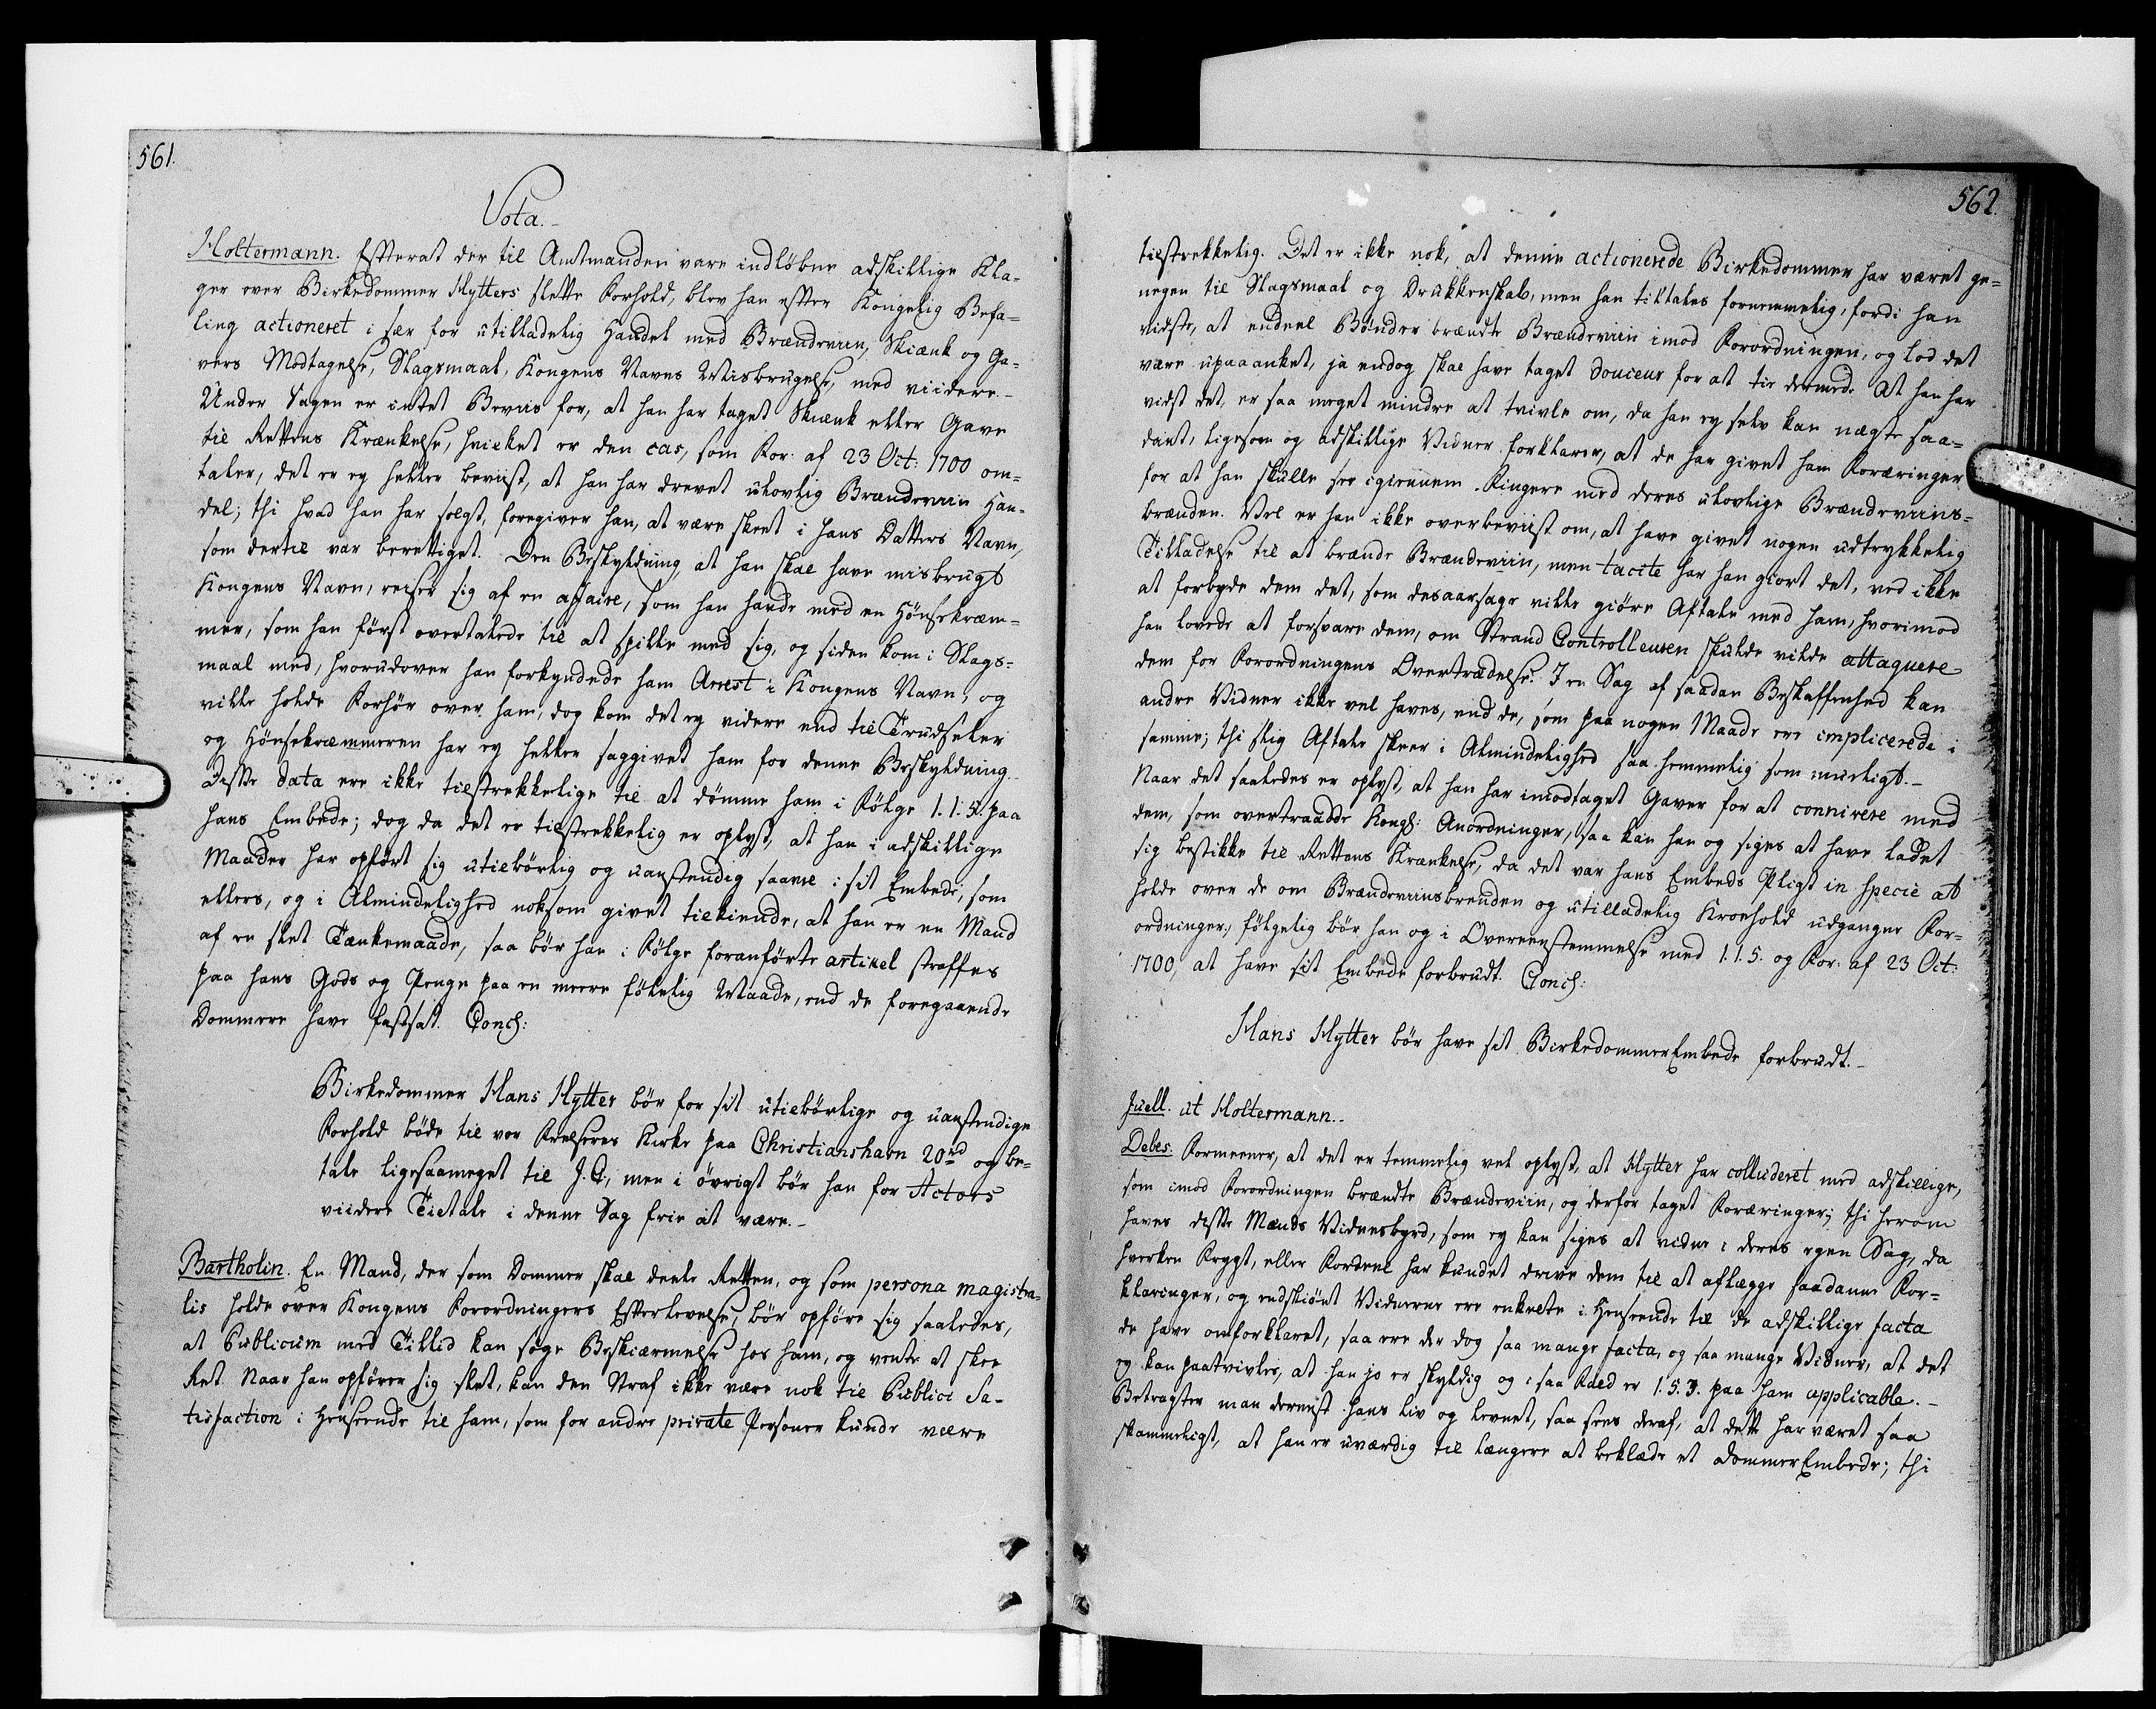 561.
Vota.
Holtermann. Efterat der til Amtmanden vare indløbne adskillige Kla-
ger over Birkedommer Hytters slette Forhold, blev han efter Kongelig Befa-
ling actioneret i sær for utilladelig Handel med Brændeviin, Skiænk og Ga-
vers Modtagelse, Slagsmaal, Kongens Navns Misbrugelse, med viidere.-
Under Sagen er intet Beviis for, at han har taget Skiænk eller Gave
til Rettens Krænkelse, hvilket er den cas, som For: af 23 Oct: 1700 om-
taler, det er ey heller beviist, at han har drevet ulovlig Brændeviin Han-
del; thi hvad han har solgt, foregiver han, at være skeet i hans Datters Navn,
som dertil var berettiget. Den Beskyldning, at han skal have misbrugt
Kongens Navn, reiser sig af en affaire, som han havde med en Hønsekræm-
mer, som han først overtalede til at spille med sig, og siden kom i Slags-
maal med, hvorudover han forkyndede ham Arrest i Kongens Navn, og
ville holde Forhør over ham, dog kom det ey videre end til Trudseler
og Hønsekræmmeren har ey heller saggivet ham for denne Beskyldning.
Disse data ere ikke tilstrekkelige til at dømme ham i Følge 1.1.5. paa
hans Embede; dog da det er tilstrekkelig er oplyst, at han i adskillige
Maader har opført sig utilbørlig og uanstendig saavel i sit Embede, som
ellers, og i Almindelighed noksom givet tilkiende, at han er en Mand
af en slet Tænkemaade, saa bør han i Følge foranførte artikel straffes
paa hans Gods og Penge paa en meere følelig Maade, end de foregaaende
Dommere have fastsat. Concl:
Birkedommer Hans Hytter bør for sit utilbørlige og uanstendige
Forhold bøde til vor Frelseres Kirke paa Christianshavn 20 rd og be-
tale ligesaameget til J. C., men i øvrigt bør han for Actors
viidere Tiltale i denne Sag frie at være.-
Bartholin. En Mand, der som Dommer skal deele Retten, og som persona magistra-
lis holde over Kongens Forordningers Efterlevelse, bør opføre sig saaledes,
at Publicum med Tillid kan søge Beskiærmelse hos ham, og vente at skee
Ret. Naar han opfører sig slet, kan den Straf ikke være nok til Publici Sa-
tisfaction i Henseende til ham, som for andre private Personer kunde være
562.
tilstrekkelig. Det er ikke nok, at denne actionerede Birkedommer har været ge-
neigen til Slagsmaal og Drukkenskab, men han tiltales fornemmelig, fordi han
vidste, at endeel Bønder brændte Brændeviin imod Forordningen, og lod det
være upaaanket, ja endog skal have taget Douceur for at tie dermed. At han har
vidst det, er saa meget mindre at tvivle om, da han ey selv kan nægte saa-
dant, ligesom og adskillige Vidner forklarer, at de har givet ham Foræringer
for at han skulle see igiennem Fingere med deres ulovlige Brændeviins-
brænden. Vel er han ikke overbeviist om, at have givet nogen udtrykkelig
Tilladelse til at brænde Brændeviin, men tacite har han giort det, ved ikke
at forbyde dem det, som desaarsage ville giøre Aftale med ham, hvorimod
han lovede at forsvare dem, om Strand Controlleuren skulde vilde attaquere
dem for Forordningens Overtrædelse. I en Sag af saadan Beskaffenhed kan
andre Vidner ikke vel haves, end de, som paa nogen Maade ere implicerede i
samme; thi slig Aftale skeer i Almindelighed saa hemmelig som mueligt.-
Naar det saaledes er oplyst, at han har imodtaget Gaver for at connivere med
dem, som overtraadde Kongl: Anordninger, saa kan han og siges at have ladet
sig bestikke til Rettens Krænkelse, da det var hans Embeds Pligt in specie at
holde over de om Brændeviinsbrenden og utilladelig Kroehold udgangne For-
ordninger, følgelig bør han og i Overeenstemmelse med 1.1.5. og For: af 23 Oct:
1700, at have sit Embede forbrudt. Concl:
Hans Hytter bør have sit BirkedommerEmbede forbrudt.-
Juell. ut Holtermann.-
Debes. Formeener, at det er temmelig vel oplyst, at Hytter har colluderet med adskillige,
som imod Forordningen brændte Brændeviin, og derfor taget Foræringer; thi herom
haves disse Mænds Vidnesbyrd, som ey kan siges at vidne i deres egen Sag, da
hverken Frygt, eller Fordeel har kundet drive dem til at aflægge saadanne For-
klaringer, og endskiønt Vidnerne ere enkelte i Henseende til de adskillige facta
de have omforklaret, saa ere der dog saa mange facta, og saa mange Vidner, at det
ey kan paatvivles, at han jo er skyldig og i saa Fald er 1.5.3. paa ham applicable.-
Betragter man dernest hans Liv og Levnet, saa sees deraf, at dette har været saa
skammeligt, at han er uværdig til længere at beklæde et DommerEmbede; thi